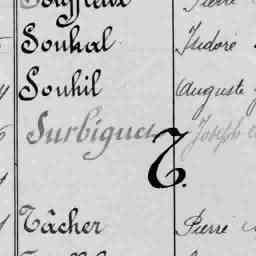 Souhal Isidore
Souhil Auguste
Surbigues Joseph
T.
Tâcher Pierre